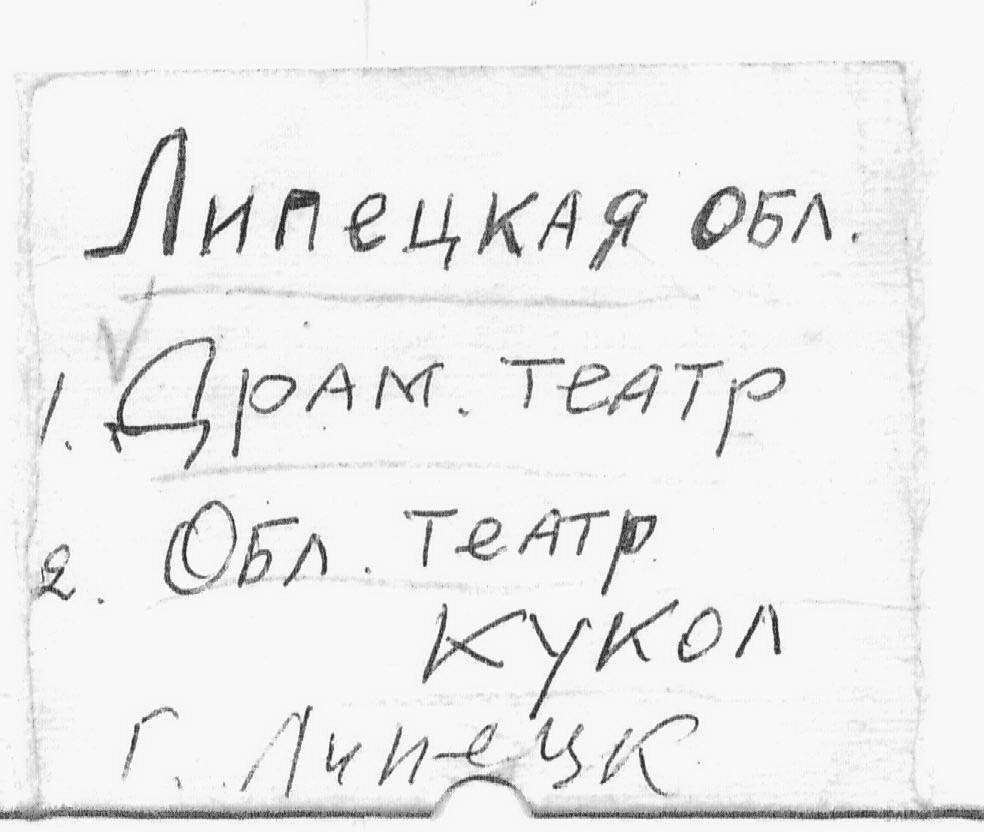 Липецкая обл.
1. Драм. театр
2. Обл. театр
кукол
г. Липецк